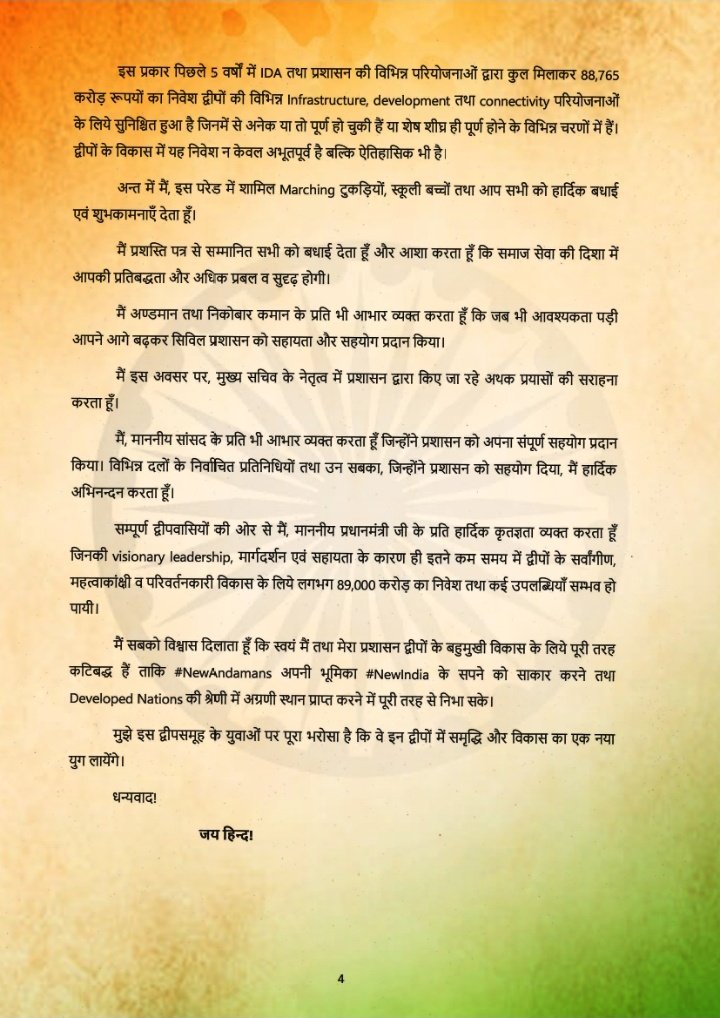 इस प्रकार पिछले 5 वर्षों में IDA तथा प्रशासन की विभिन्न परियोजनाओं द्वारा कुल मिलाकर 88,765
करोड़ रूपयों का निवेश द्वीपों की विभिन्न Infrastructure, development तथा connectivity परियोजनाओं
के लिये सुनिश्चित हुआ है जिनमें से अनेक या तो पूर्ण हो चुकी हैं या शेष शीघ्र ही पूर्ण होने के विभिन्न चरणों में हैं।
द्वीपों के विकास में यह निवेश न केवल अभूतपूर्व है बल्कि ऐतिहासिक भी है।
अन्त में मैं, इस परेड में शामिल Marching टुकड़ियों, स्कूली बच्चों तथा आप सभी को हार्दिक बधाई
एवं शुभकामनाएँ देता हूँ।
मैं प्रशस्ति पत्र से सम्मानित सभी को बधाई देता हूँ और आशा करता हूँ कि समाज सेवा की दिशा में
आपकी प्रतिबद्धता और अधिक प्रबल व सुदृढ़ होगी।
मैं अण्डमान तथा निकोबार कमान के प्रति भी आभार व्यक्त करता हूँ कि जब भी आवश्यकता पड़ी
आपने आगे बढ़कर सिविल प्रशासन को सहायता और सहयोग प्रदान किया।
मैं इस अवसर पर, मुख्य सचिव के नेतृत्व में प्रशासन द्वारा किए जा रहे अथक प्रयासों की सराहना
करता हूँ।
मैं, माननीय सांसद के प्रति भी आभार व्यक्त करता हूँ जिन्होंने प्रशासन को अपना संपूर्ण सहयोग प्रदान
किया। विभिन्न दलों के निर्वाचित प्रतिनिधियों तथा उन सबका, जिन्होंने प्रशासन को सहयोग दिया, मैं हार्दिक
अभिनन्दन करता हूँ।
सम्पूर्ण द्वीपवासियों की ओर से मैं, माननीय प्रधानमंत्री जी के प्रति हार्दिक कृतज्ञता व्यक्त करता हूँ
जिनकी visionary leadership, मार्गदर्शन एवं सहायता के कारण ही इतने कम समय में द्वीपों के सर्वांगीण,
महत्वाकांक्षी व परिवर्तनकारी विकास के लिये लगभग 89,000 करोड़ का निवेश तथा कई उपलब्धियाँ सम्भव हो
पायी।
मैं सबको विश्वास दिलाता हूँ कि स्वयं मैं तथा मेरा प्रशासन द्वीपों के बहुमुखी विकास के लिये पूरी तरह
कटिबद्ध हैं ताकि #NewAndamans अपनी भूमिका #NewIndia के सपने को साकार करने तथा
Developed Nations की श्रेणी में अग्रणी स्थान प्राप्त करने में पूरी तरह से निभा सके।
मुझे इस द्वीपसमूह के युवाओं पर पूरा भरोसा है कि वे इन द्वीपों में समृद्धि और विकास का एक नया
युग लायेंगे।
धन्यवाद!
जय हिन्द!
4